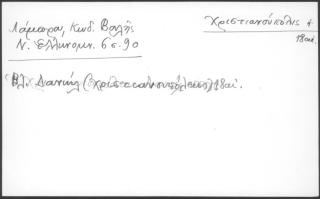 Λάμπρου, Κωδ. Βουλῆς
Ν. Ἑλληνομν. 6 σ. 90
Χριστιανούπολις
18 αι.
Βλ. Δανιήλ (Χριστιανουπόλεως) 18 αἰ.